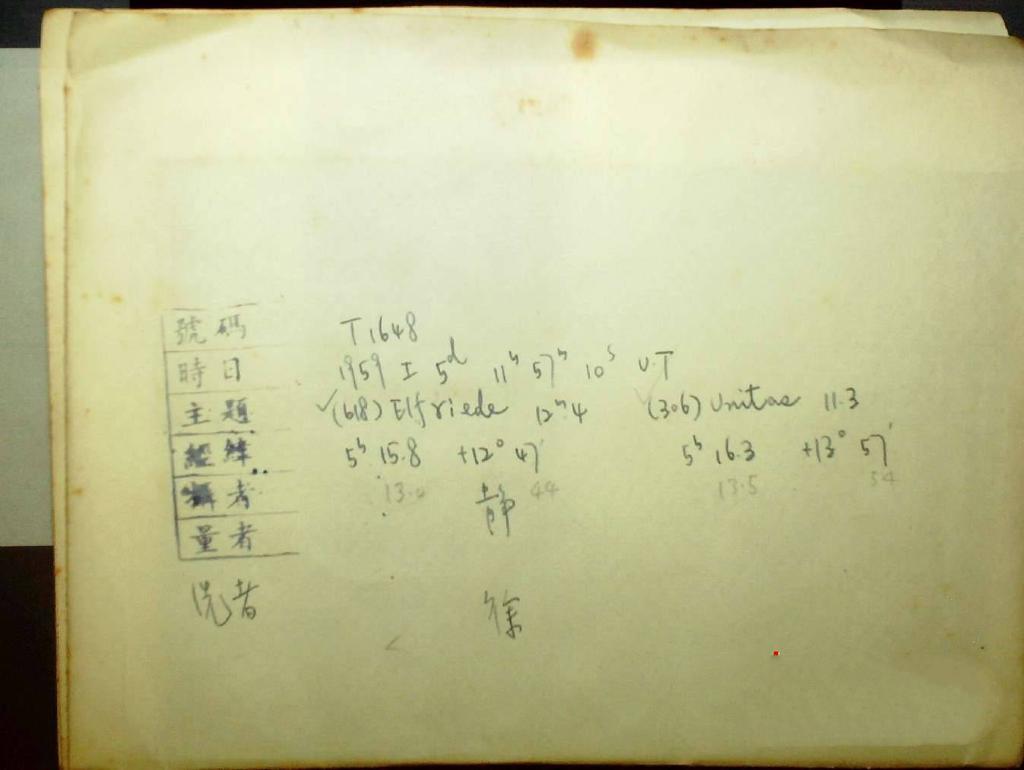 號碼 T1648
時日 1959 I 5d 11h 57m 10s U.T
主題 ✓(618) Elfriede 12m4 ✓(306) Unitas 11.3
經緯 5h 15.8 +12° 47' 5h 16.3 +13° 57'
13.0 44 13.5 54
攝者 静
量者
洗者 徐